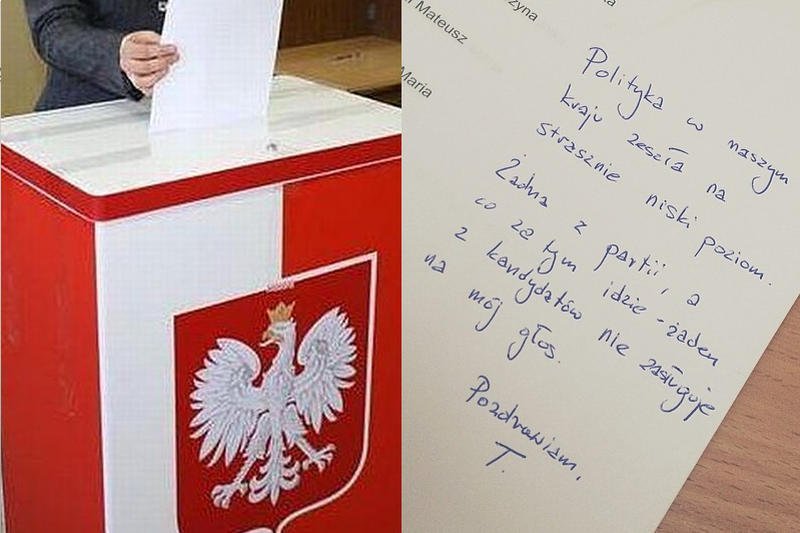 zyna
Mateusz
Maria
Polityka w naszym
kraju zeszła na
strasznie niski poziom.
Żadna z partii, a
co za tym idzie - żaden
z kandydatów nie zasługuje
na mój głos.
Pozdrawiam,
T.